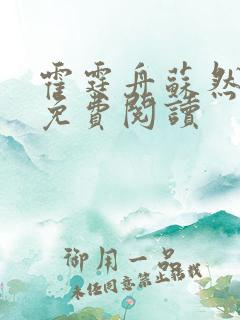 霍霆舟蘇然
免費閱讀
御用一品
未经同意禁止转载